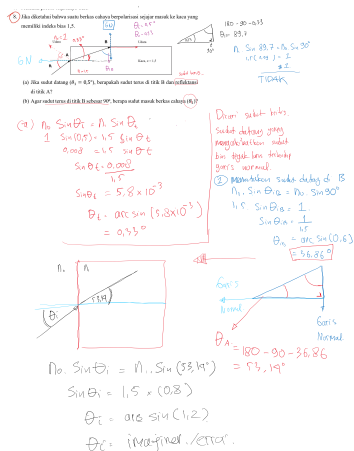 8. Jika diketahui bahwa suatu berkas cahaya berpolarisasi sejajar masuk ke kaca yang
memiliki indeks bias 1,5.
GN
A
B
Udara
Kaca, n = 1,5
180 - 90 - 0,33
θ = 89.7
n Sin 89.7 = n₀ Sin 90°
≠ 1
TIDAK
(a) Jika sudut datang (θᵢ = 0,5°), berapakah sudut terus di titik B dan refleksinya
di titik A?
(b) Agar sudut terus di titik B sebesar 90°, berapa sudut masuk berkas cahaya (θᵢ)?
(a) n₀ Sin θᵢ = n. Sin θt
1 Sin (0,5) = 1,5 sin θt
0,008 = 1,5 sin θt
Sin θt = 0,008
1,5
Sin θt = 5,8 x 10⁻³
θt = arc sin (5,8x10⁻³)
= 0,33°
Dicari sudut kritis.
Sudut datang yang
mengakibatkan sudut
bias tegak lurus terhadap
garis normal.
② Menentukan sudut datang di B
n₁. Sin θᵢB = n₀ Sin 90°
1,5 Sin θᵢB = 1
Sin θᵢB = 1
1,5
θᵢB = arc sin (0,6)
= 36,86°
n₀
n
53,14
θᵢ
Garis
Normal
Garis
Normal
θA = 180 - 90 - 36,86
= 53,14°
n₀. Sin θᵢ = n₁. Sin (53,14°)
Sin θᵢ = 1,5 x (0,8)
θᵢ = arc sin (1,2)
θᵢ = imaginer./error.